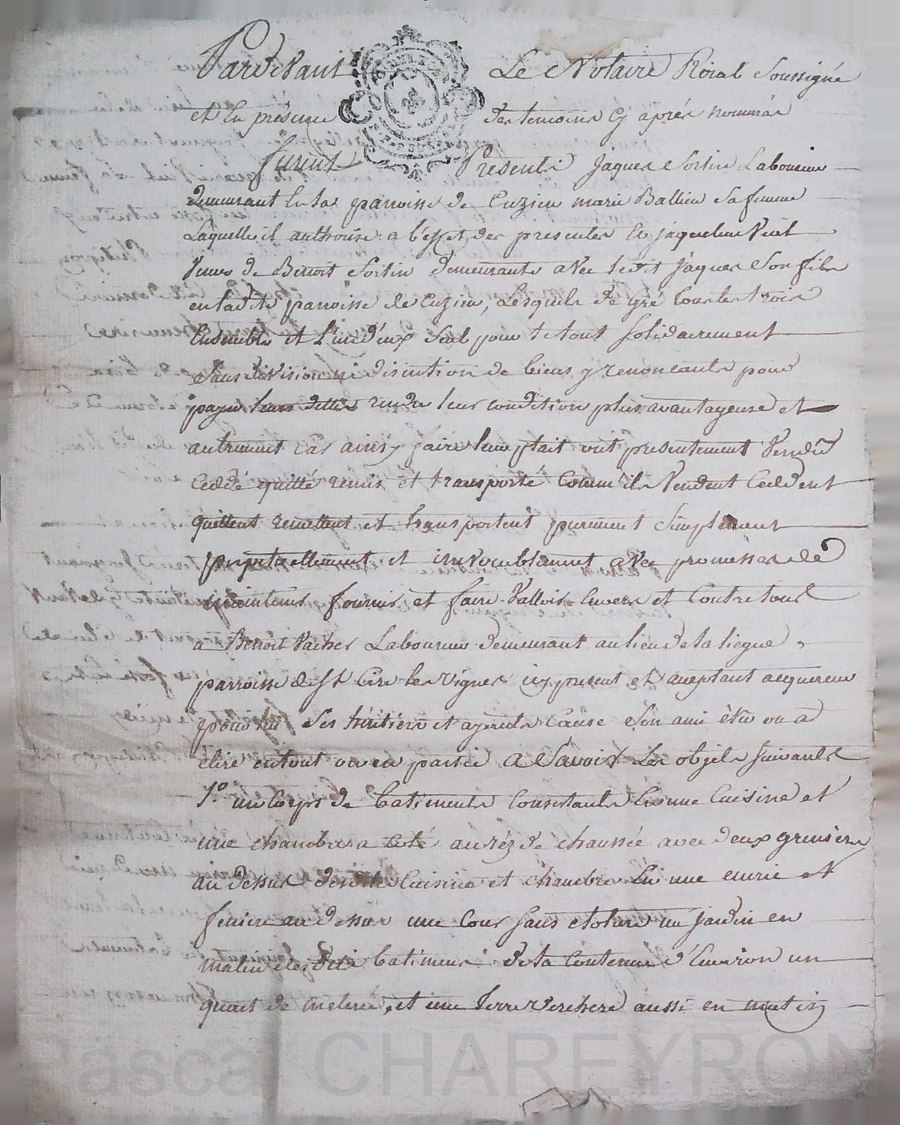 Pardevant Le Notaire Roial Soussigné
et En présence des temoins cy après nommés
furent Presents Jaques Sortin Laboureur
demeurant En la parroisse de Cuzieu marie Ballieu Sa femme
Laquelle il authorise a l'effet des presentes Et jaqueline
veuve de Benoit Sortin demeurante avec ledit Jaques Son fils
en ladte parroisse de Cuzieu, Lesquels de gré tous les trois
Ensemble et L'un d'eux Seul pour le tout Solidairement
Sans division ni discution de biens y renonceants pour
payer leurs dettes rendre leur condition plus avantageuse et
autrement car ainsy faire leur plait ont presentement Vendu
Ceddé quitté remis et transporté Comm'ils Vendent Ceddent
quittent remettent et transportent purement Simplement
perpetuellement et irrevocablement avec promesses de
maintenir fournir et faire Valloir Envers et Contre tous
a Benoit Laboureur demeurant au lieu de la liegue
parroisse de St Cire les Vignes icy present et aceptant acquereur
pour lui Ses héritiers et ayants Cause Son ami élu ou a
élire en tout ou en partie a Savoir Les objets Suivants
1o un Corps de batiments Consistants En une Cuisine et
une chambre a Coté au réz de chaussée avec deux greniers
au dessus desdte Cuisine et chambre En une ecurie et
feniere au dessus une Cour Sans cloture un jardin en
matin desdits batiments de la Contenue d'Environ un
quart de meterée, et une Terre verchere aussi en matin
Pascal CHAREYRON